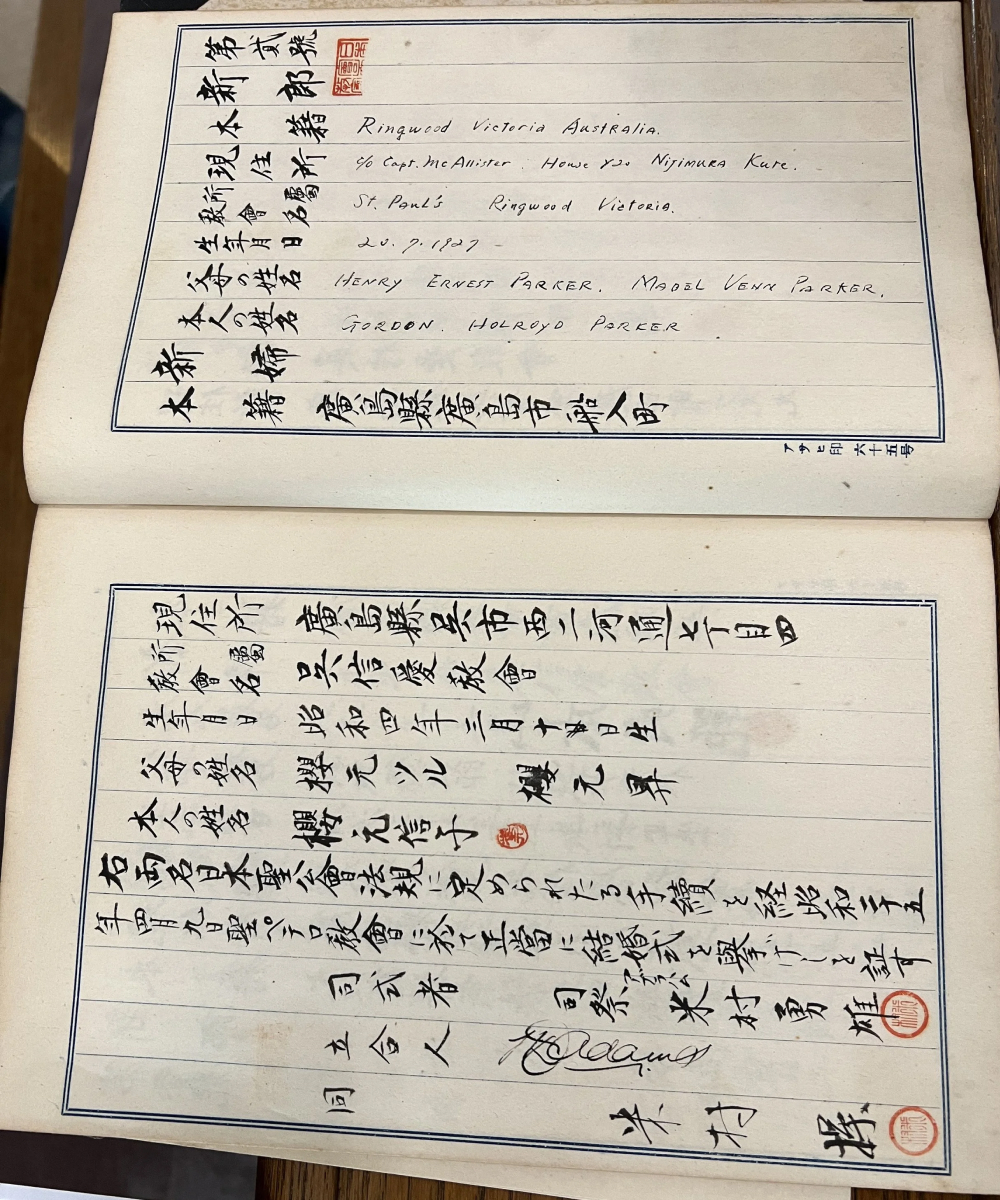 第貳號
新郎
本籍 Ringwood Victoria Australia.
現住所 c/o Capt. McAllister. House Y20 Nijimura Kure.
所屬教會名 St. Paul's Ringwood Victoria.
生年月日 20.7.1927 -
父母の姓名 HENRY ERNEST PARKER. MABEL VENN PARKER.
本人の姓名 GORDON. HOLROYD PARKER
新婦
本籍 廣島縣廣島市船入町
アサヒ印 六十五号
現住所 廣島縣呉市西二河通七丁目四
所屬教會名 呉信愛教會
生年月日 昭和四年三月十日生
父母の姓名 櫻元ツル 櫻元昇
本人の姓名 櫻元信子
右両名日本聖公會法規に定められたる手續を経昭和二十五
年四月九日聖ペテロ教會に於て正當に結婚式を擧げしを証す
司式者 司祭 アブラハム 米村勇雄
立合人 Adams
同 米村